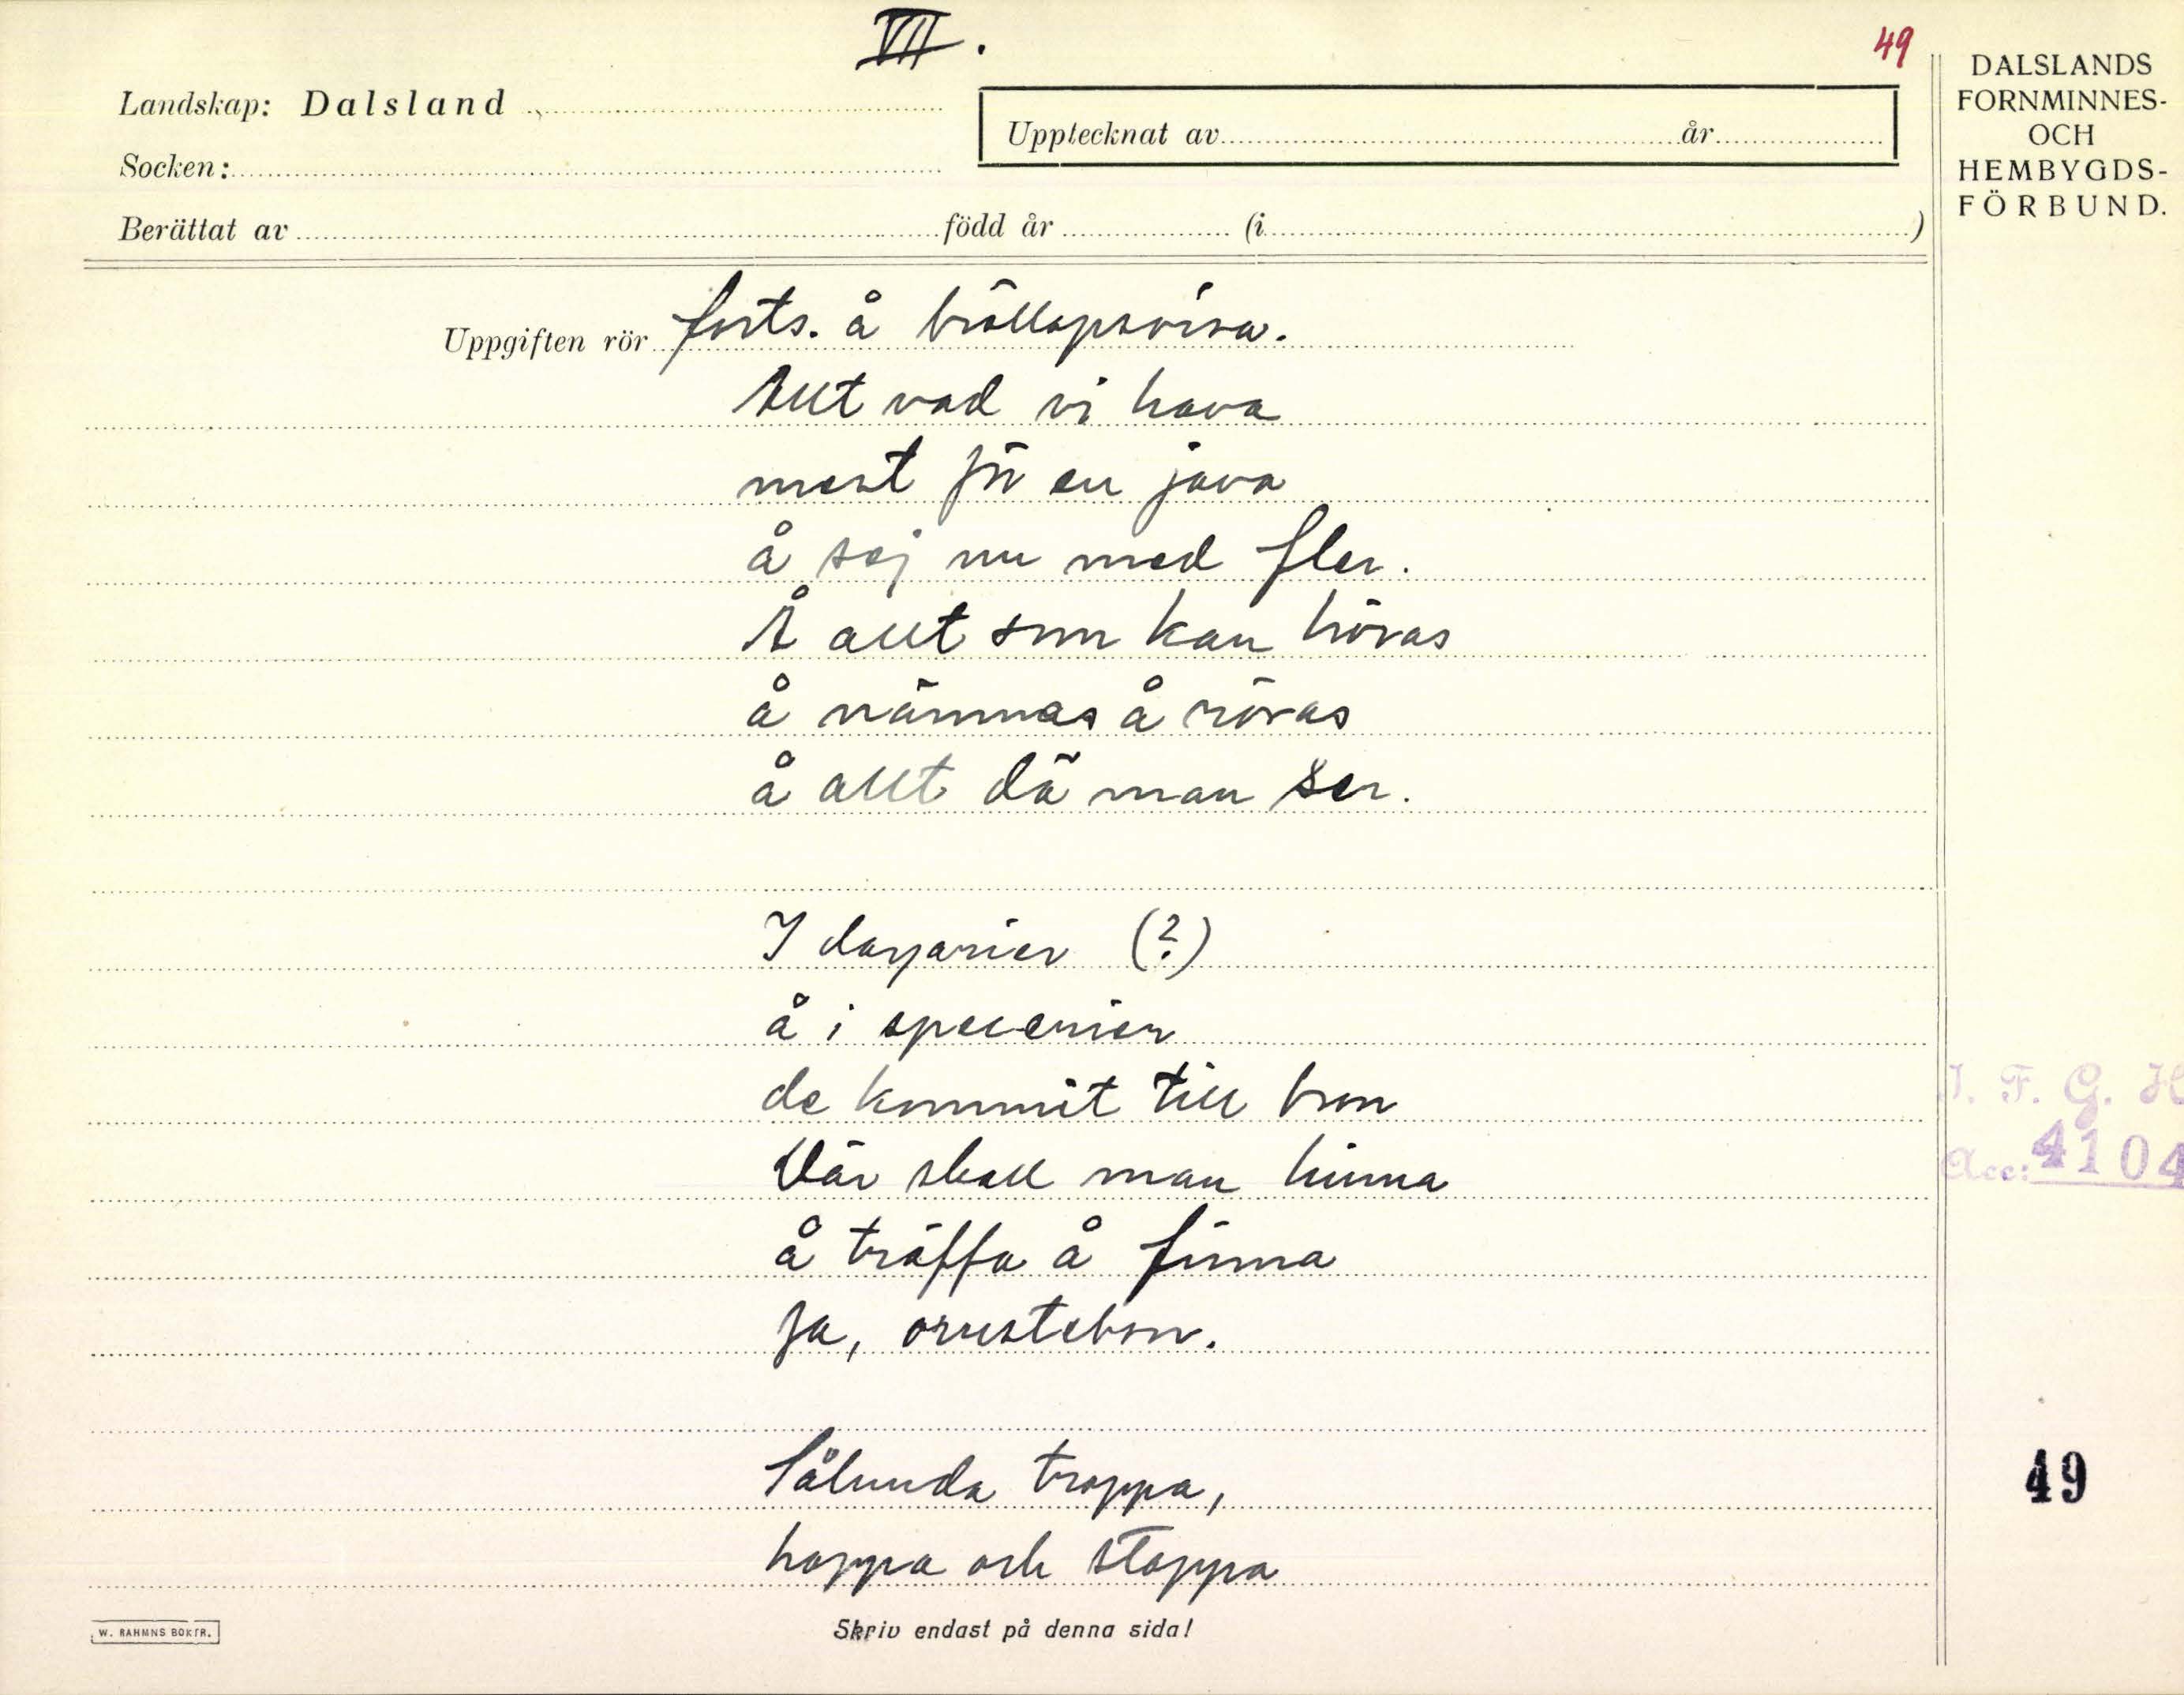 VII.
49
Landskap: Dalsland
Upptecknat av år
Socken:
Berättat av född år (i )
DALSLANDS
FORNMINNES-
OCH
HEMBYGDS-
FÖRBUND.
Uppgiften rör forts. å bröllopsvisa.
Allt vad vi hava
mest för en java
å saj nu med fler.
Å allt som kan höras
å nämnas å röras
å allt dä man ser.
I (?)
å i specerier
de kommit till bron
Där skall man hinna
å träffa å finna
Ja,
Sålunda troppa,
hoppa och stoppa
I. F. G. H
Acc: 4104
49
W. RAHMNS BOKTR.
Skriv endast på denna sida!